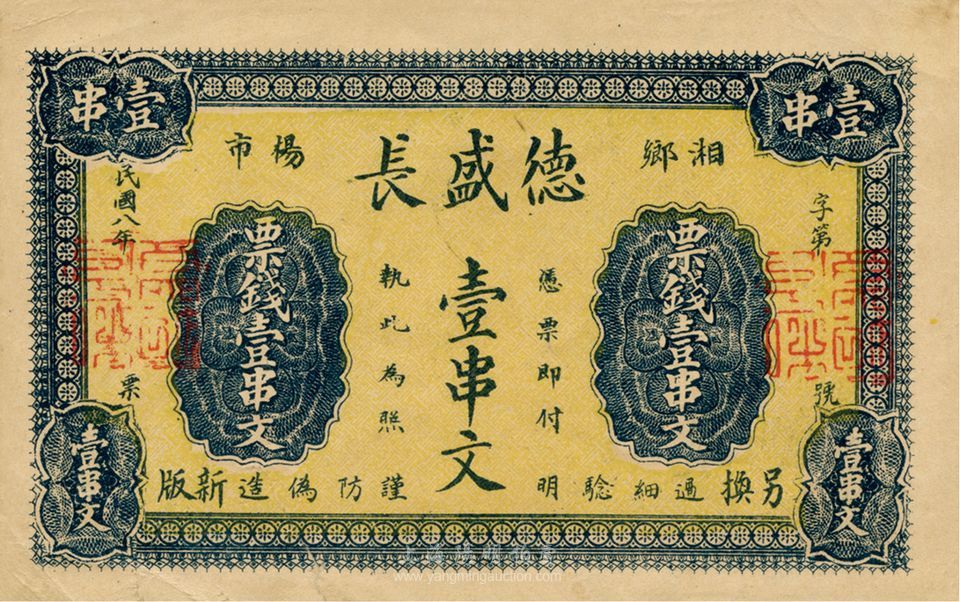 壹串
壹串
湘鄉
德盛長
楊市
字第
號
憑票即付
壹串文
執此為照
票錢壹串文
票錢壹串文
民國八年
票
另換過細騐明
謹防偽造新版
壹串文
壹串文
www.yangmingauction.com